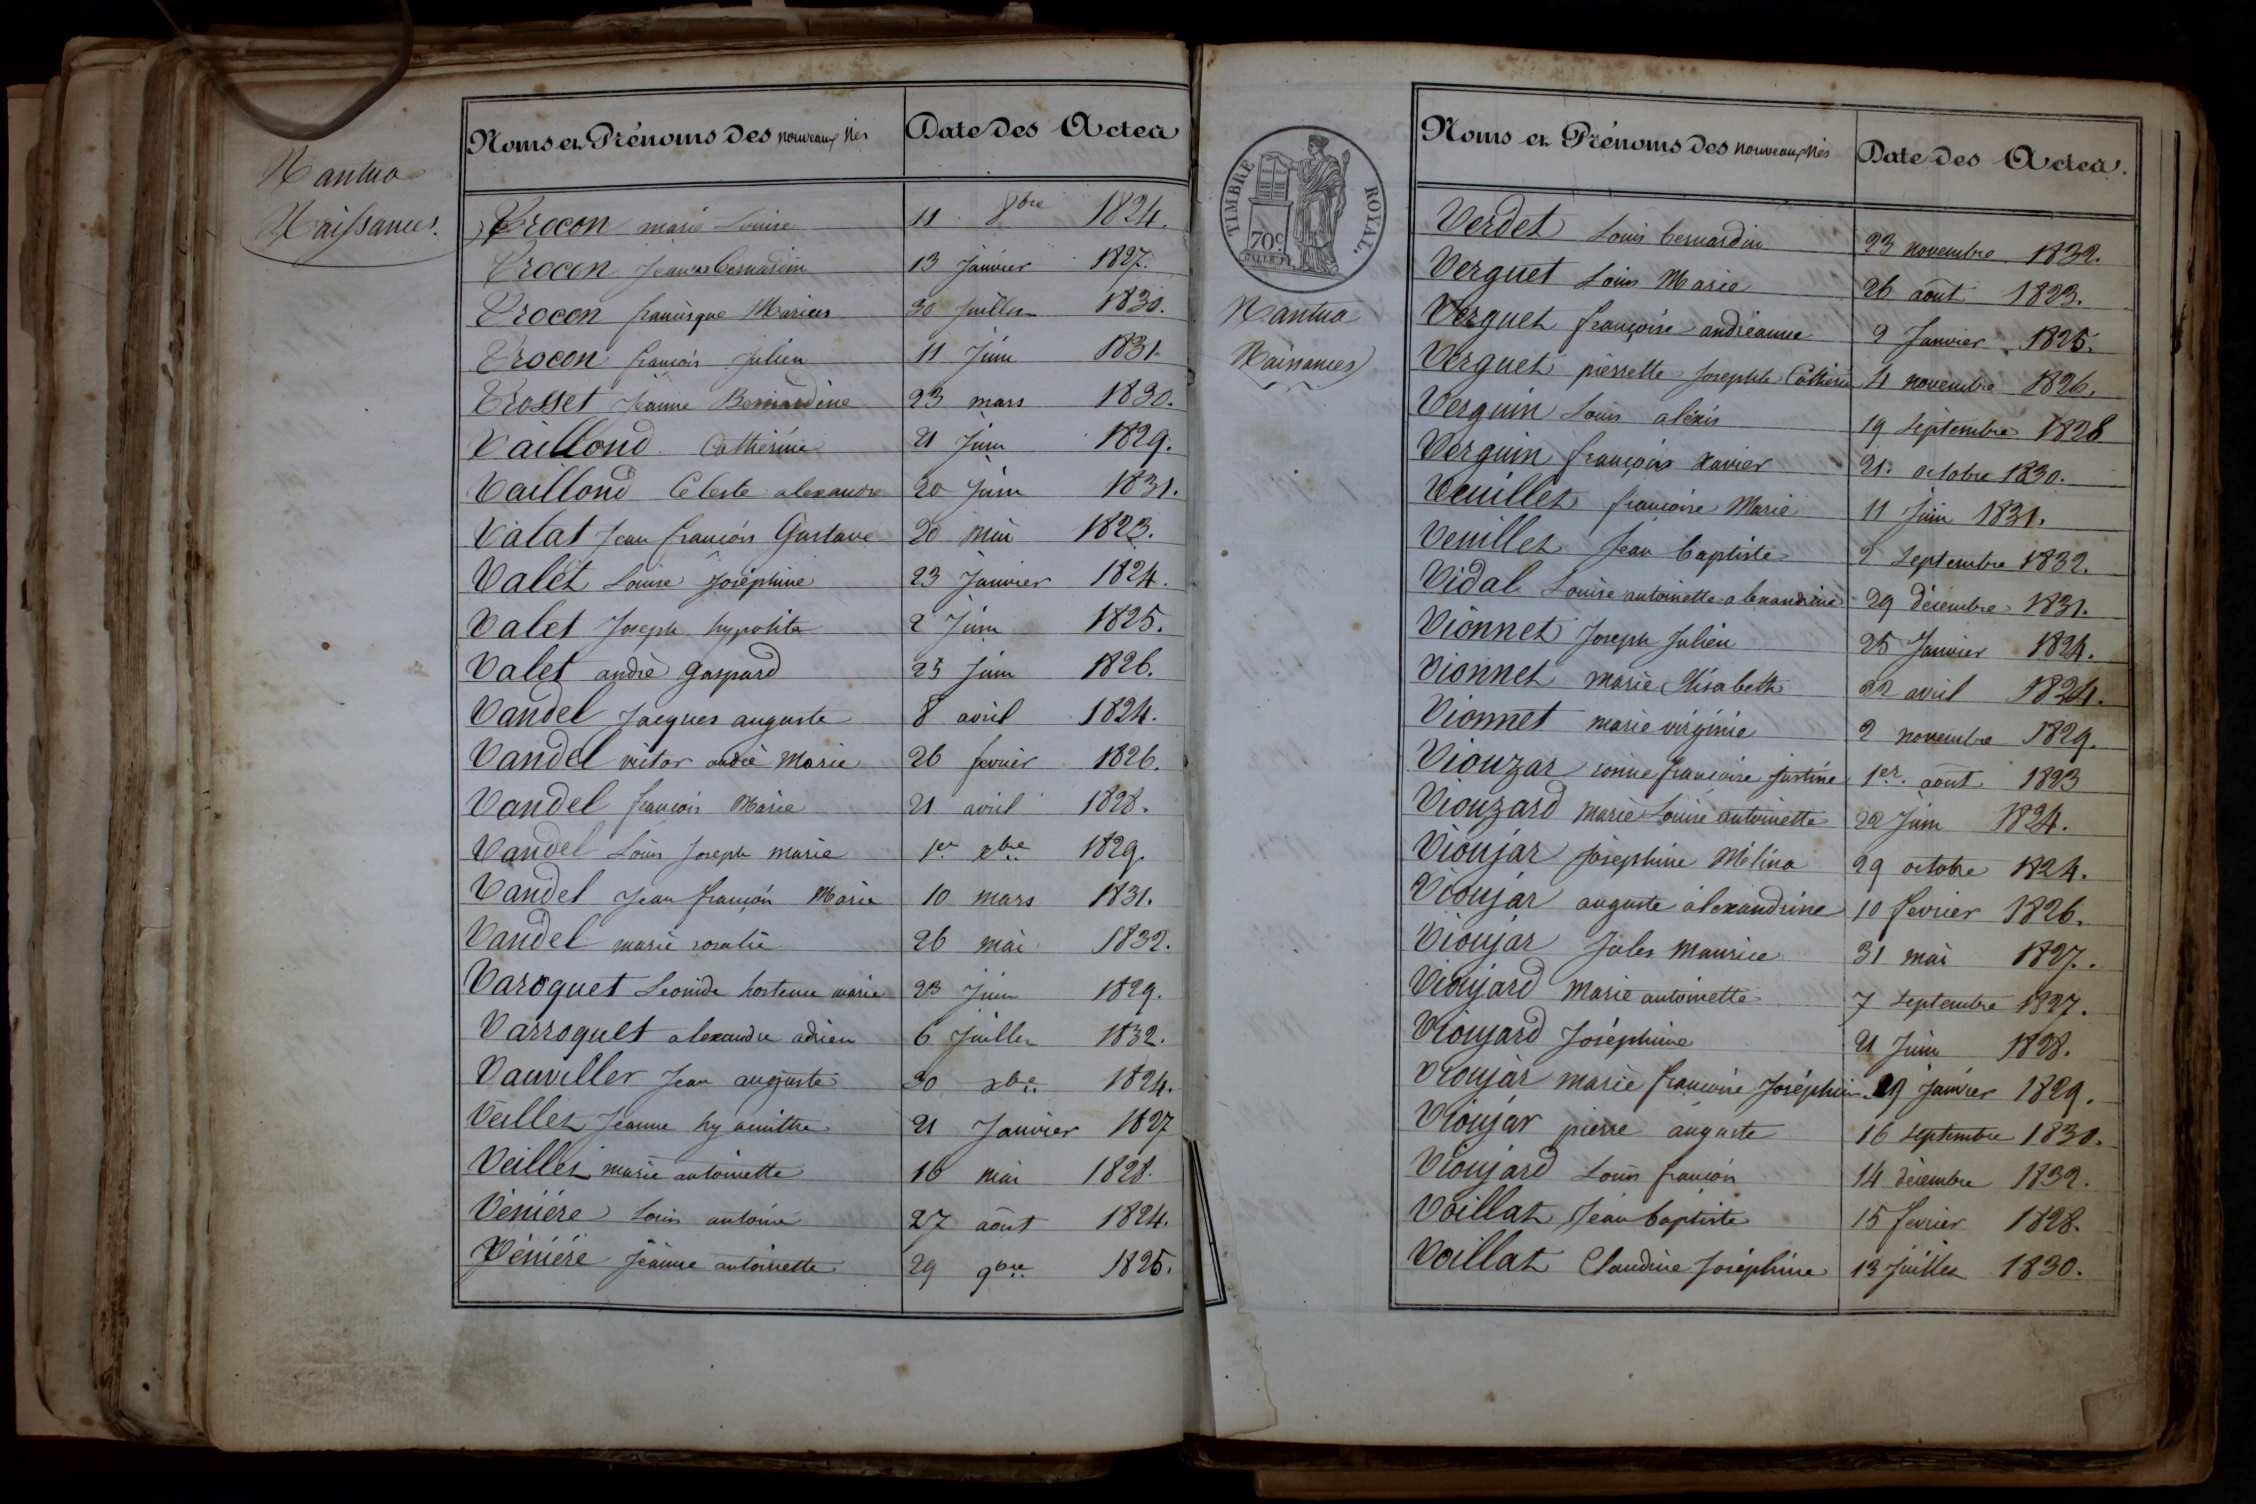 Nantua
Naissances.
Noms et Prénoms des nouveaux Nés
Date des Actes
Trocon marie Louise 11 8bre 1824.
Trocon Jeanne Bernardin 13 Janvier 1827.
Trocon francisque Marius 30 Juillet 1830.
Trocon françois Julien 11 Juin 1831.
Trosset Jeanne Bernardine 23 mars 1830.
Vaillond Catherine 21 Juin 1829.
Vaillond Celeste alexandre 20 Juin 1831.
Valat Jean françois Gustave 20 Mai 1823.
Valet Louise Joséphine 23 Janvier 1824.
Valet Joseph hypolite 2 Juin 1825.
Valet andré gaspard 25 Juin 1826.
Vandel Jacques auguste 8 avril 1824.
Vandel victor andré Marie 26 fevrier 1826.
Vandel françois Marie 21 avril 1828.
Vandel Louis Joseph marie 1er xbre 1829.
Vandel Jean françois Marie 10 mars 1831.
Vandel marie rosalie 26 mai 1832.
Varoquet Leonide hortense marie 23 Juin 1829.
Varroquet alexandre adrien 6 Juillet 1832.
Vauviller Jean auguste 30 xbre 1824.
Veillet Jeanne hyacinthe 21 Janvier 1827
Veillet marie antoinette 16 mai 1828.
Véniére Louis antoine 27 août 1824.
Véniére Jeanne antoinette 29 9bre 1825.
TIMBRE ROYAL.
70c
Nantua
Naissances
Noms et Prénoms des nouveaux Nés
Date des Actes.
Verdet Louis bernardin 23 novembre 1832.
Verguet Louis Marie 26 août 1823.
Verguet françoise andréanne 9 Janvier 1825.
Verguet pierrette Josephte Catherine 4 novembre 1826.
Verguin Louis aléxis 19 septembre 1828
Verguin françois xavier 21 octobre 1830.
Veuillet françoise Marie 11 Juin 1831.
Veuillet Jean baptiste 2 septembre 1832.
Vidal Louise antoinette alexandrine 29 décembre 1831.
Vionnet Joseph Julien 25 Janvier 1824.
Vionnet marie Elisabeth 22 avril 1824.
Vionnet marie virginie 2 novembre 1829.
Viouzar françoise Justine 1er août 1823
Viouzard marie Louise antoinette 22 Juin 1824.
Vioujar Joséphine Mélina 29 octobre 1824.
Vioujar auguste alexandrine 10 fevrier 1826.
Vioujar Jules Maurice 31 mai 1827.
Vioujard Marie antoinette 7 septembre 1827.
Vioujard Joséphine 21 Juin 1828.
Vioujar marie françoise Joséphine 29 janvier 1829.
Vioujar pierre auguste 16 septembre 1830.
Vioujard Louis françois 14 décembre 1832.
Voillat Jean baptiste 15 fevrier 1828.
Voillat Claudine Joséphine 13 Juillet 1830.